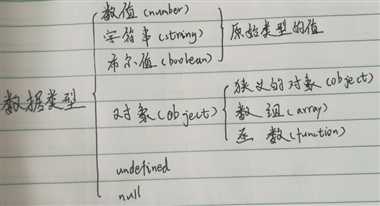 数据类型
数值(number)
字符串(string)
布尔值(boolean)
原始类型的值
对象(object)
狭义的对象(object)
数组(array)
函数(function)
undefined
null